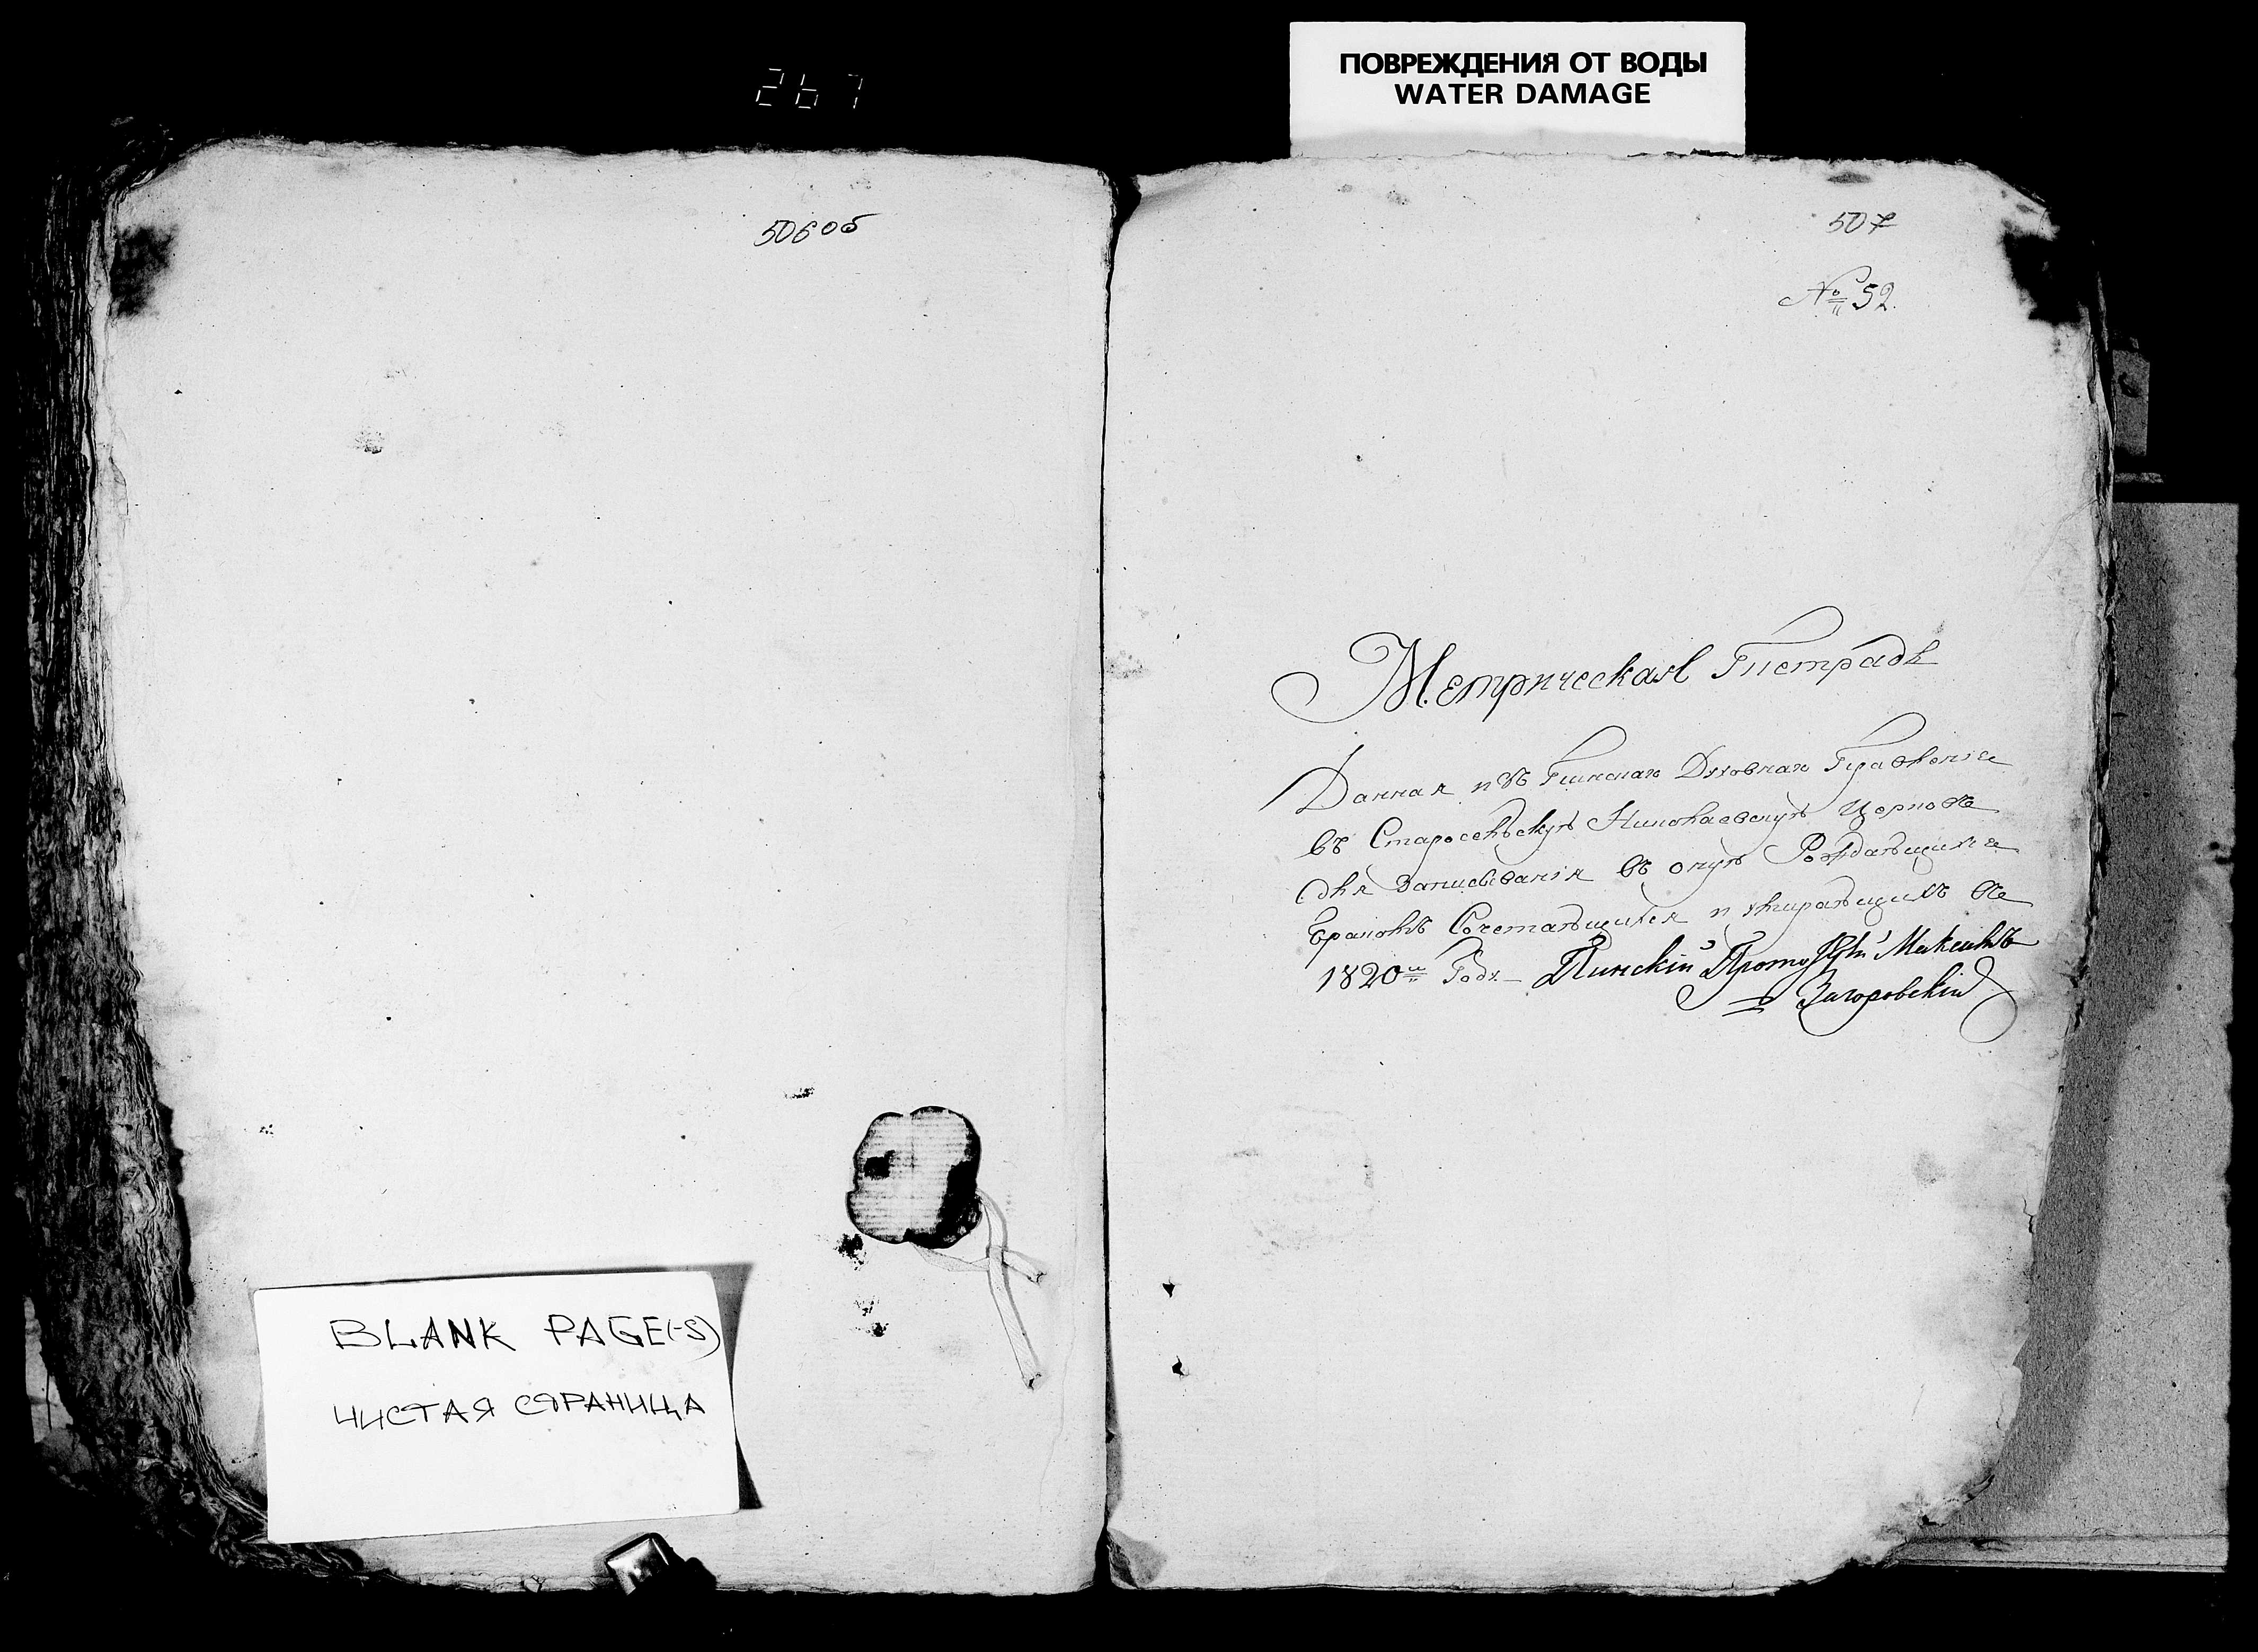 267
ПОВРЕЖДЕНИЯ ОТ ВОДЫ
WATER DAMAGE
506 об
507
№ 52.
Метрическая Тетрадь
Данная изъ Пинскаго Духовнаго Правленія
въ Старосельскую Николаевскую Церковь
для Записыванія въ оную Рождающихся
Бракомъ Сочетающихся и умирающихъ въ
1820м Году – Пинскій Максимъ
Загоровскій
BLANK PAGE(-S)
ЧИСТАЯ СТРАНИЦА